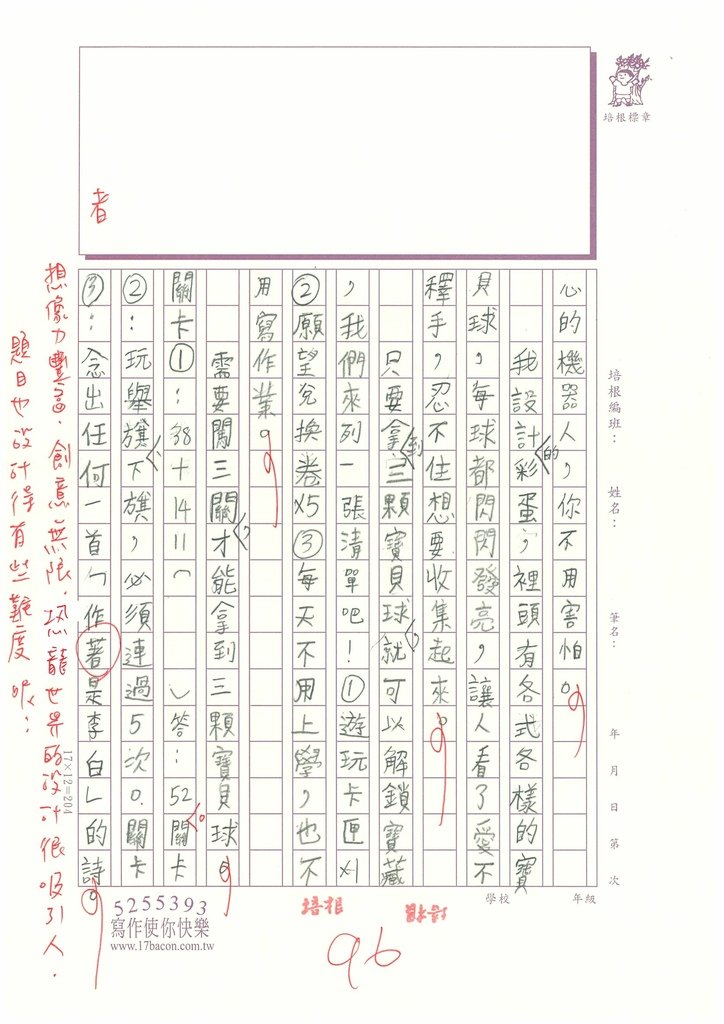 培根標章
培根編班：　姓名：　筆名：　年　月　日　第　次
心的機器人，你不用害怕。
我設計彩蛋，裡頭有各式各樣的寶
的
貝球，每球都閃閃發亮，讓人看了愛不
釋手，忍不住想要收集起來。
只要拿三顆寶貝球就可以解鎖寶藏
到
，
，我們來列一張清單吧！①遊玩卡匣x1
②願望兌換卷x5③每天不用上學，也不
用寫作業。
需要闖三關才能拿到三顆寶貝球。
，
關卡①：38+14=(　　)答：52關卡
。
②：玩舉旗下旗，必須連過5次。關卡
、
③：念出任何一首「作著是李白」的詩。
者
17×12=204
想像力豐富，創意無限，恐龍世界的設計很吸引人，
題目也設計得有些難度呢！
5255393
寫作使你快樂
www.17bacon.com.tw
培根
學校　年級
96